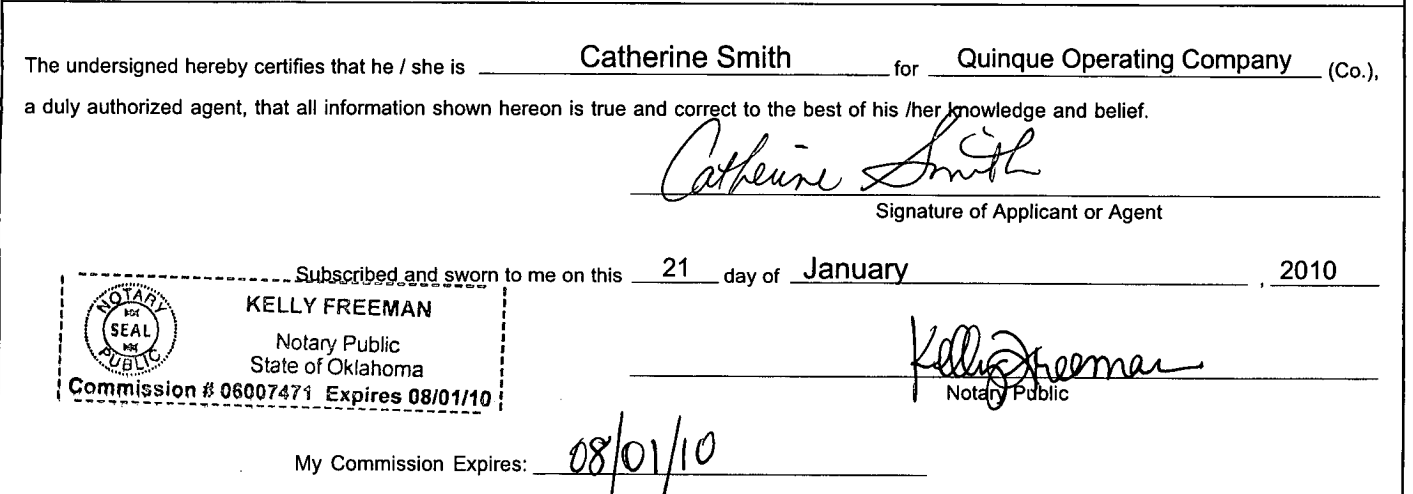 The undersigned hereby certifies that he / she is Catherine Smith for Quinque Operating Company (Co.),
a duly authorized agent, that all information shown hereon is true and correct to the best of his /her knowledge and belief.
Catherine Smith
Signature of Applicant or Agent
Subscribed and sworn to me on this 21 day of January , 2010
NOTARY
SEAL
PUBLIC
KELLY FREEMAN
Notary Public
State of Oklahoma
Commission # 06007471 Expires 08/01/10
Kelly Freeman
Notary Public
My Commission Expires: 08/01/10